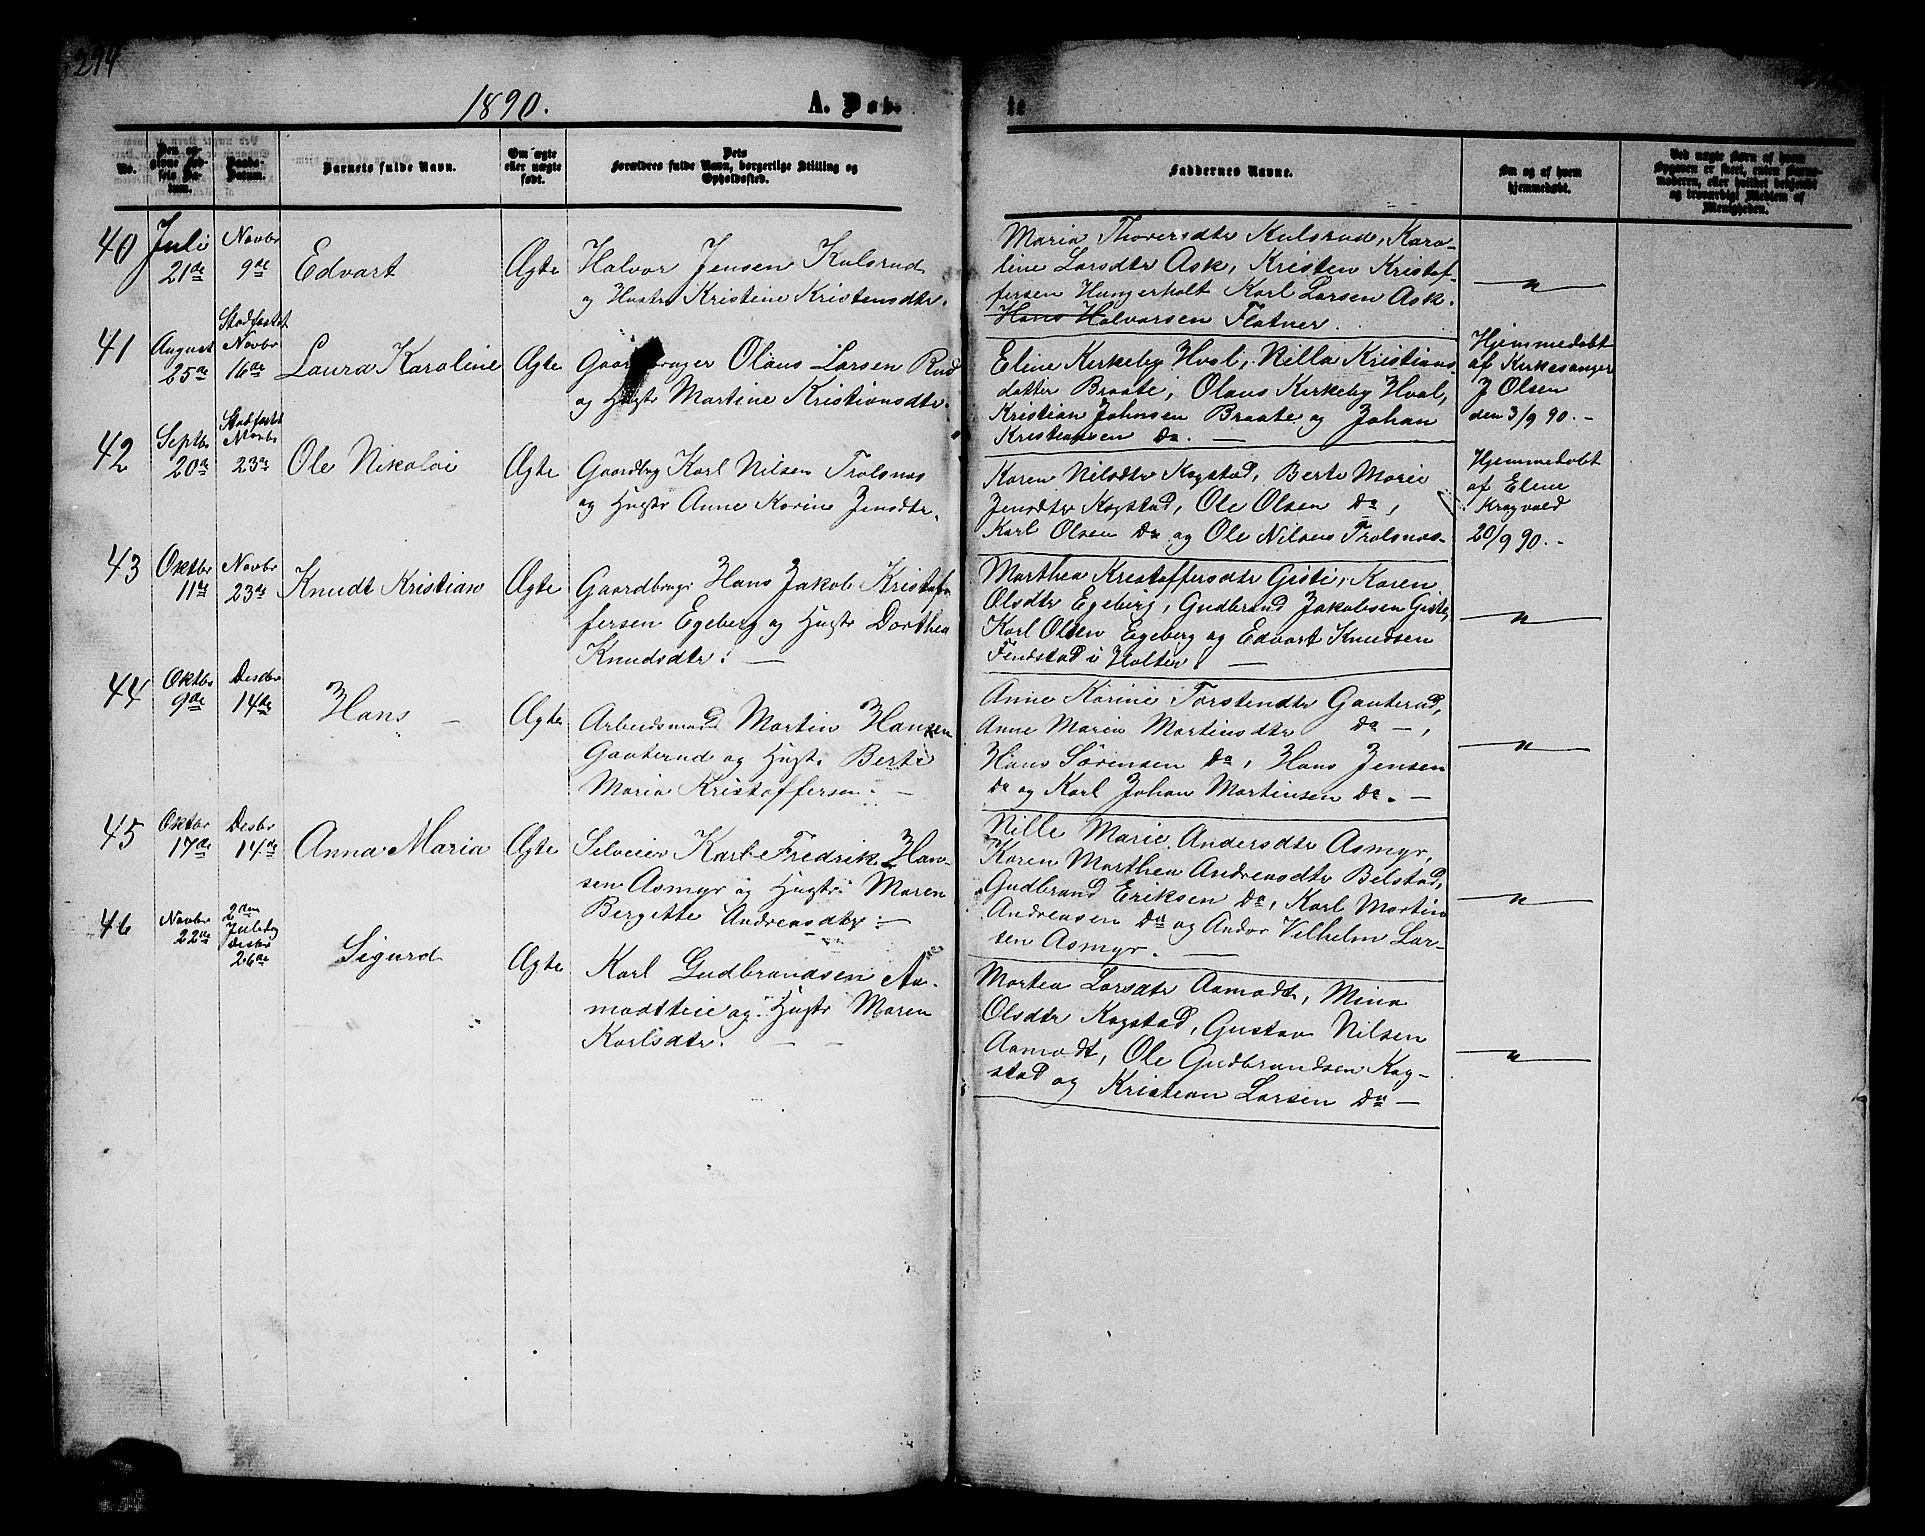 294
1890.
A. Døb-
te
No.
Den op-
givne Fød-
sels Da-
tum.
Daabs-
Datum.
Barnets fulde Navn.
Om ægte
eller uægte
født.
Dets
Forældres fulde Navn, borgerlige Stilling og
Opholdssted.
Faddernes Navne.
Om og af hvem
hjemmedøbt.
Ved uægte Børn af hvem
Opgaven er skeet, enten Barne-
moderen, eller hvilket bekjendt
og troværdigt Medlem af
Menigheden.
40
Juli
21de
Novbr
9de
Edvart
Ægte
Halvor Jensen Kulsrud
og Hustr Kristine Kristensdtr.
Maria Thoversdtr Kulsrud, Karo-
line Larsdtr Ask, Kristen Kristof-
fersen Hungerholt Karl Larsen Ask.
Hans Halvorsen Flatner.
— " —
41
August
25de
Stadfæstet
Novbr
16de
Laura Karoline
Ægte
Gaardbruger Olaus Larsen Rud
og Hustr Martine Kristiansdtr.
Eline Kirkeby Hval, Nilla Kristians-
datter Braate, Olaus Kirkeby Hval,
Kristian Johnsen Braate og Johan
Kristiansen Do. —
Hjemmedøbt
af Kirkesanger
J Olsen
den 3/9 90. -
42
Septbr
20de
Stadfæstet
Novbr
23de
Ole Nikolai
Ægte
Gaardbrg Karl Nilsen Trolsnas
og Hustr Anne Karine Jensdtr.
Karen Nilsdtr Kogstad, Berte Marie
Jensdtr Kogstad, Ole Olsen Do,
Karl Olsen Do og Ole Nilsens Trolsnas-
Hjemmedøbt
af Eline
Kragvald
20/9 90. -
43
Oktbr
11te
Novbr
23de
Knudt Kristian
Ægte
Gaardbrugr Hans Jakob Kristof-
fersen Egeberg og Hustr Dorthea
Knudsdtr. —
Marthea Kristoffersdtr Giste, Karen
Olsdtr Egeberg, Gudbrand Jakobsen Giste,
Karl Olsen Egeberg og Edvart Knudsen
Findstad i Holter. —
— " —
44
Oktbr
9de
Desbr
14de
Hans —
Ægte
Arbeidsmand Martin Hansen
Gauterud og Hustr. Berte
Maria Kristoffersen. —
Anne Karine Torstendtr Gauterud,
Anne Maria Martinsdtr Do —,
Hans Sörensen Do, Hans Jensen
Do og Karl Johan Martinsen Do. —
— " —
45
Oktbr
17de
Desbr
14de
Anna Maria
Ægte
Selveier Karl Fredrik Han-
sen Asmyr og Hustr. Maren
Bergitte Andreasdtr. —
Nille Marie Andersdtr Asmyr,
Karen Marthea Andreasdtr Bilstad,
Gudbrand Eriksen Do, Karl Martin
Andreasen Do og Andor Vilhelm Lar-
sen Asmyr. —
— " —
46
Novbr
22de
2den
Juledag
Desbr
26de
Sigurd
Ægte
Karl Gudbrandsen Aa-
modteie og Hustr Maren
Karlsdtr. — —
Martea Larsdtr Aamodt, Mina
Olsdtr Kogstad, Gustav Nilsen
Aamodt, Ole Gudbrandsen Kog-
stad og Kristian Larsen Do —
— " —